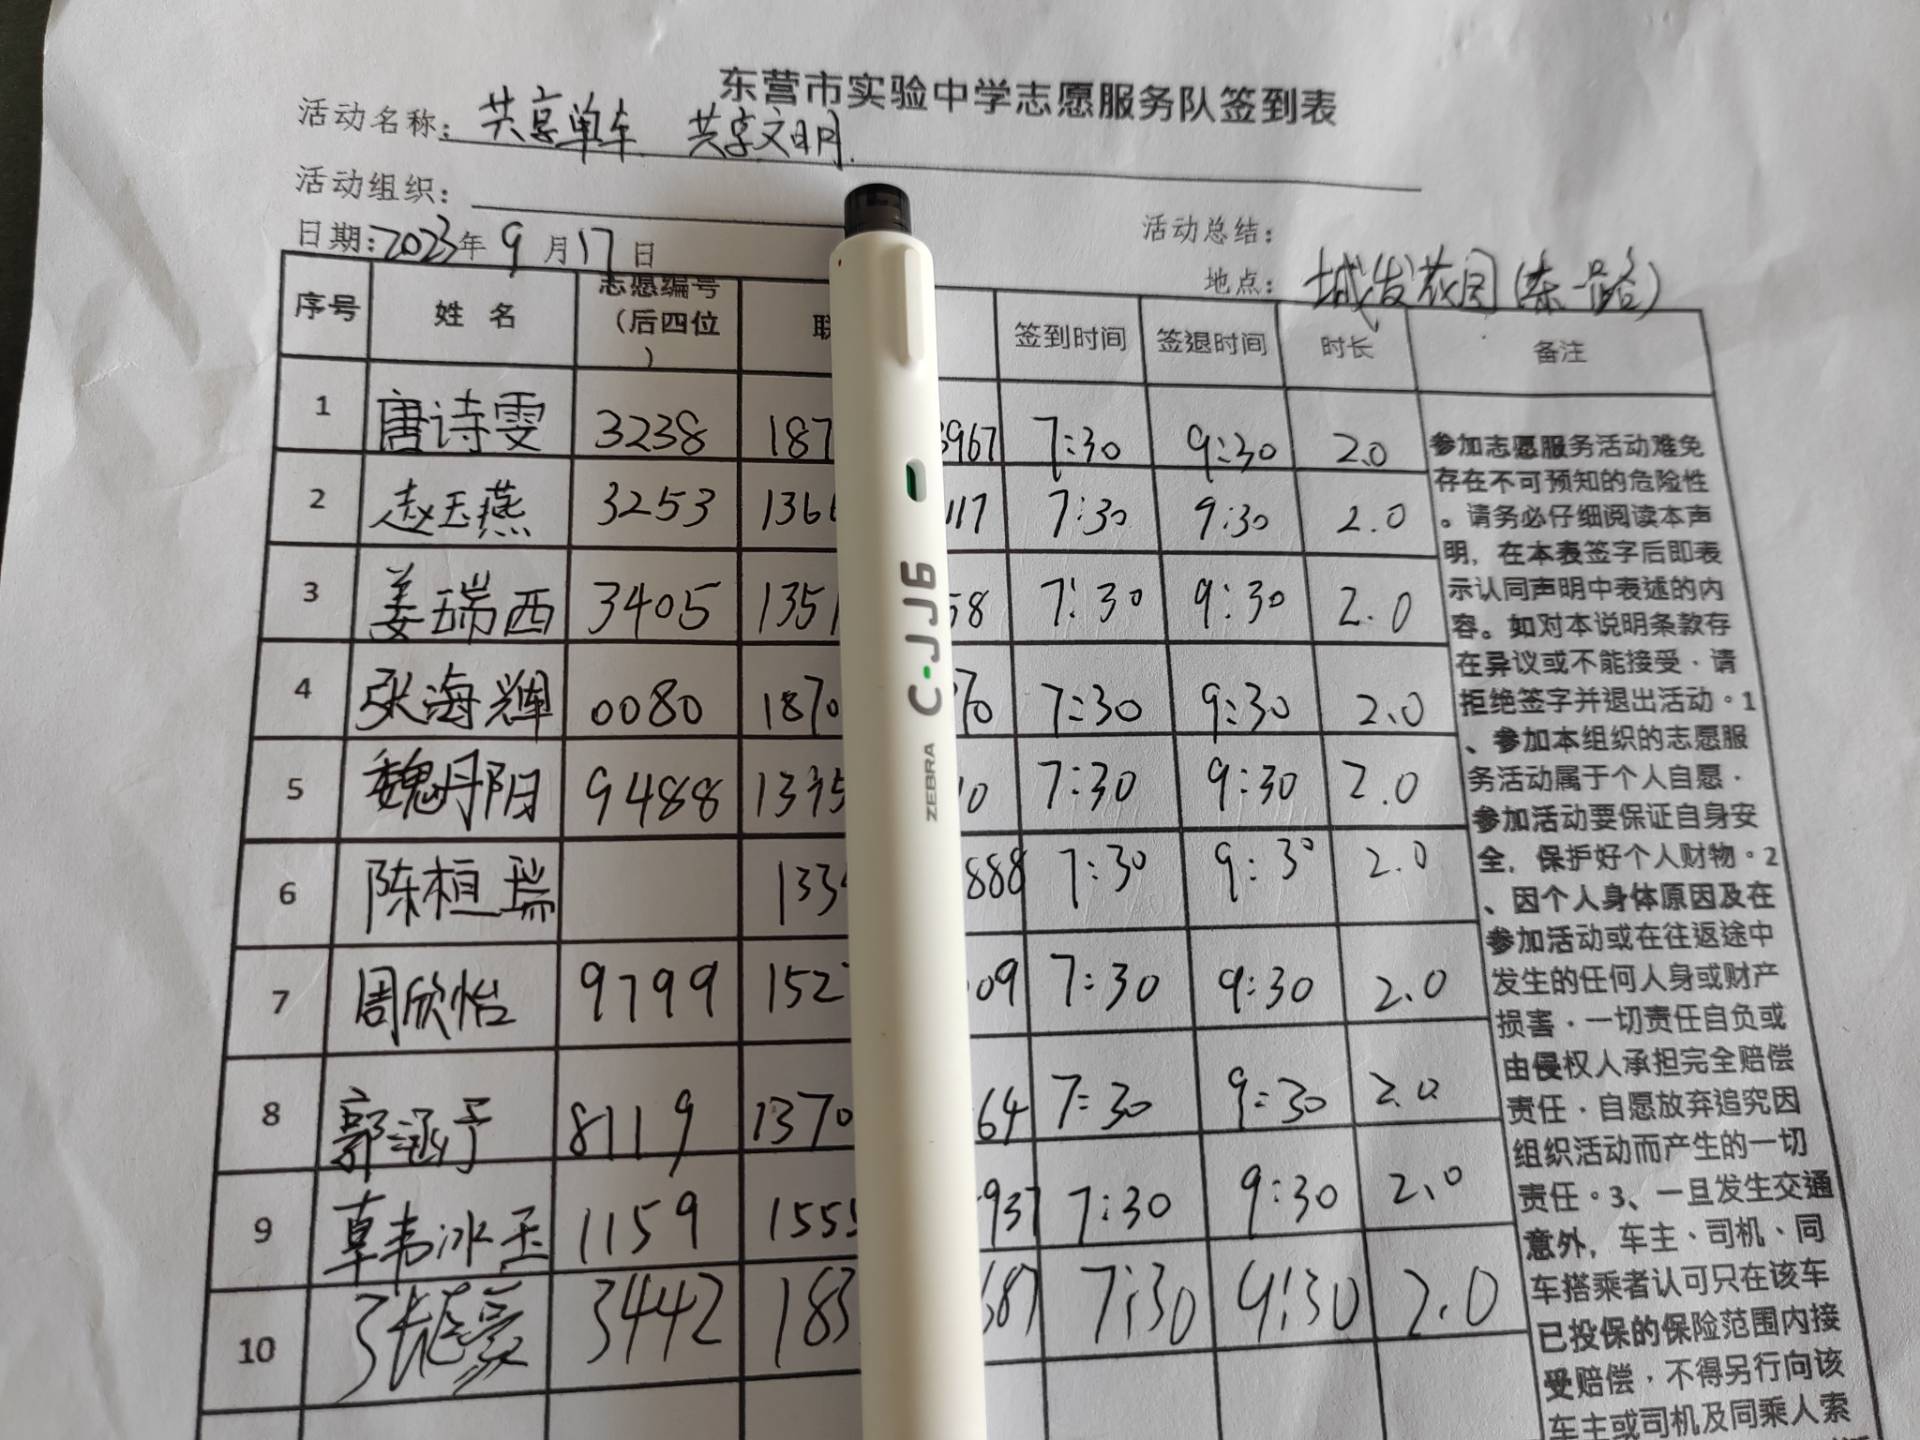 东营市实验中学志愿服务队签到表
活动名称: 共享单车 共享文明
活动组织:
活动总结:
日期:2023年9月17日
地点: 城发花园(东一路)
序号 姓名 志愿编号(后四位) 联 签到时间 签退时间 时长 备注
1 唐诗雯 3238 187 3967 7:30 9:30 2.0
2 赵玉燕 3253 136 117 7:30 9:30 2.0
3 姜瑞西 3405 1351 58 7:30 9:30 2.0
4 张海辉 0080 1870 70 7:30 9:30 2.0
5 魏丹阳 9488 1395 10 7:30 9:30 2.0
6 陈桓瑞 133 888 7:30 9:30 2.0
7 周欣怡 9799 152 09 7:30 9:30 2.0
8 郭涵予 8119 1370 64 7:30 9:30 2.0
9 韦冰玉 1159 1555 937 7:30 9:30 2.0
10 3442 183 687 7:30 9:30 2.0
参加志愿服务活动难免
存在不可预知的危险性
。请务必仔细阅读本声
明,在本表签字后即表
示认同声明中表述的内
容。如对本说明条款存
在异议或不能接受·请
拒绝签字并退出活动。1
、参加本组织的志愿服
务活动属于个人自愿·
参加活动要保证自身安
全,保护好个人财物。2
、因个人身体原因及在
参加活动或在往返途中
发生的任何人身或财产
损害·一切责任自负或
由侵权人承担完全赔偿
责任·自愿放弃追究因
组织活动而产生的一切
责任。3、一旦发生交通
意外,车主、司机、同
车搭乘者认可只在该车
已投保的保险范围内接
受赔偿·不得另行向该
车主或司机及同乘人索
C·JJ6
ZEBRA